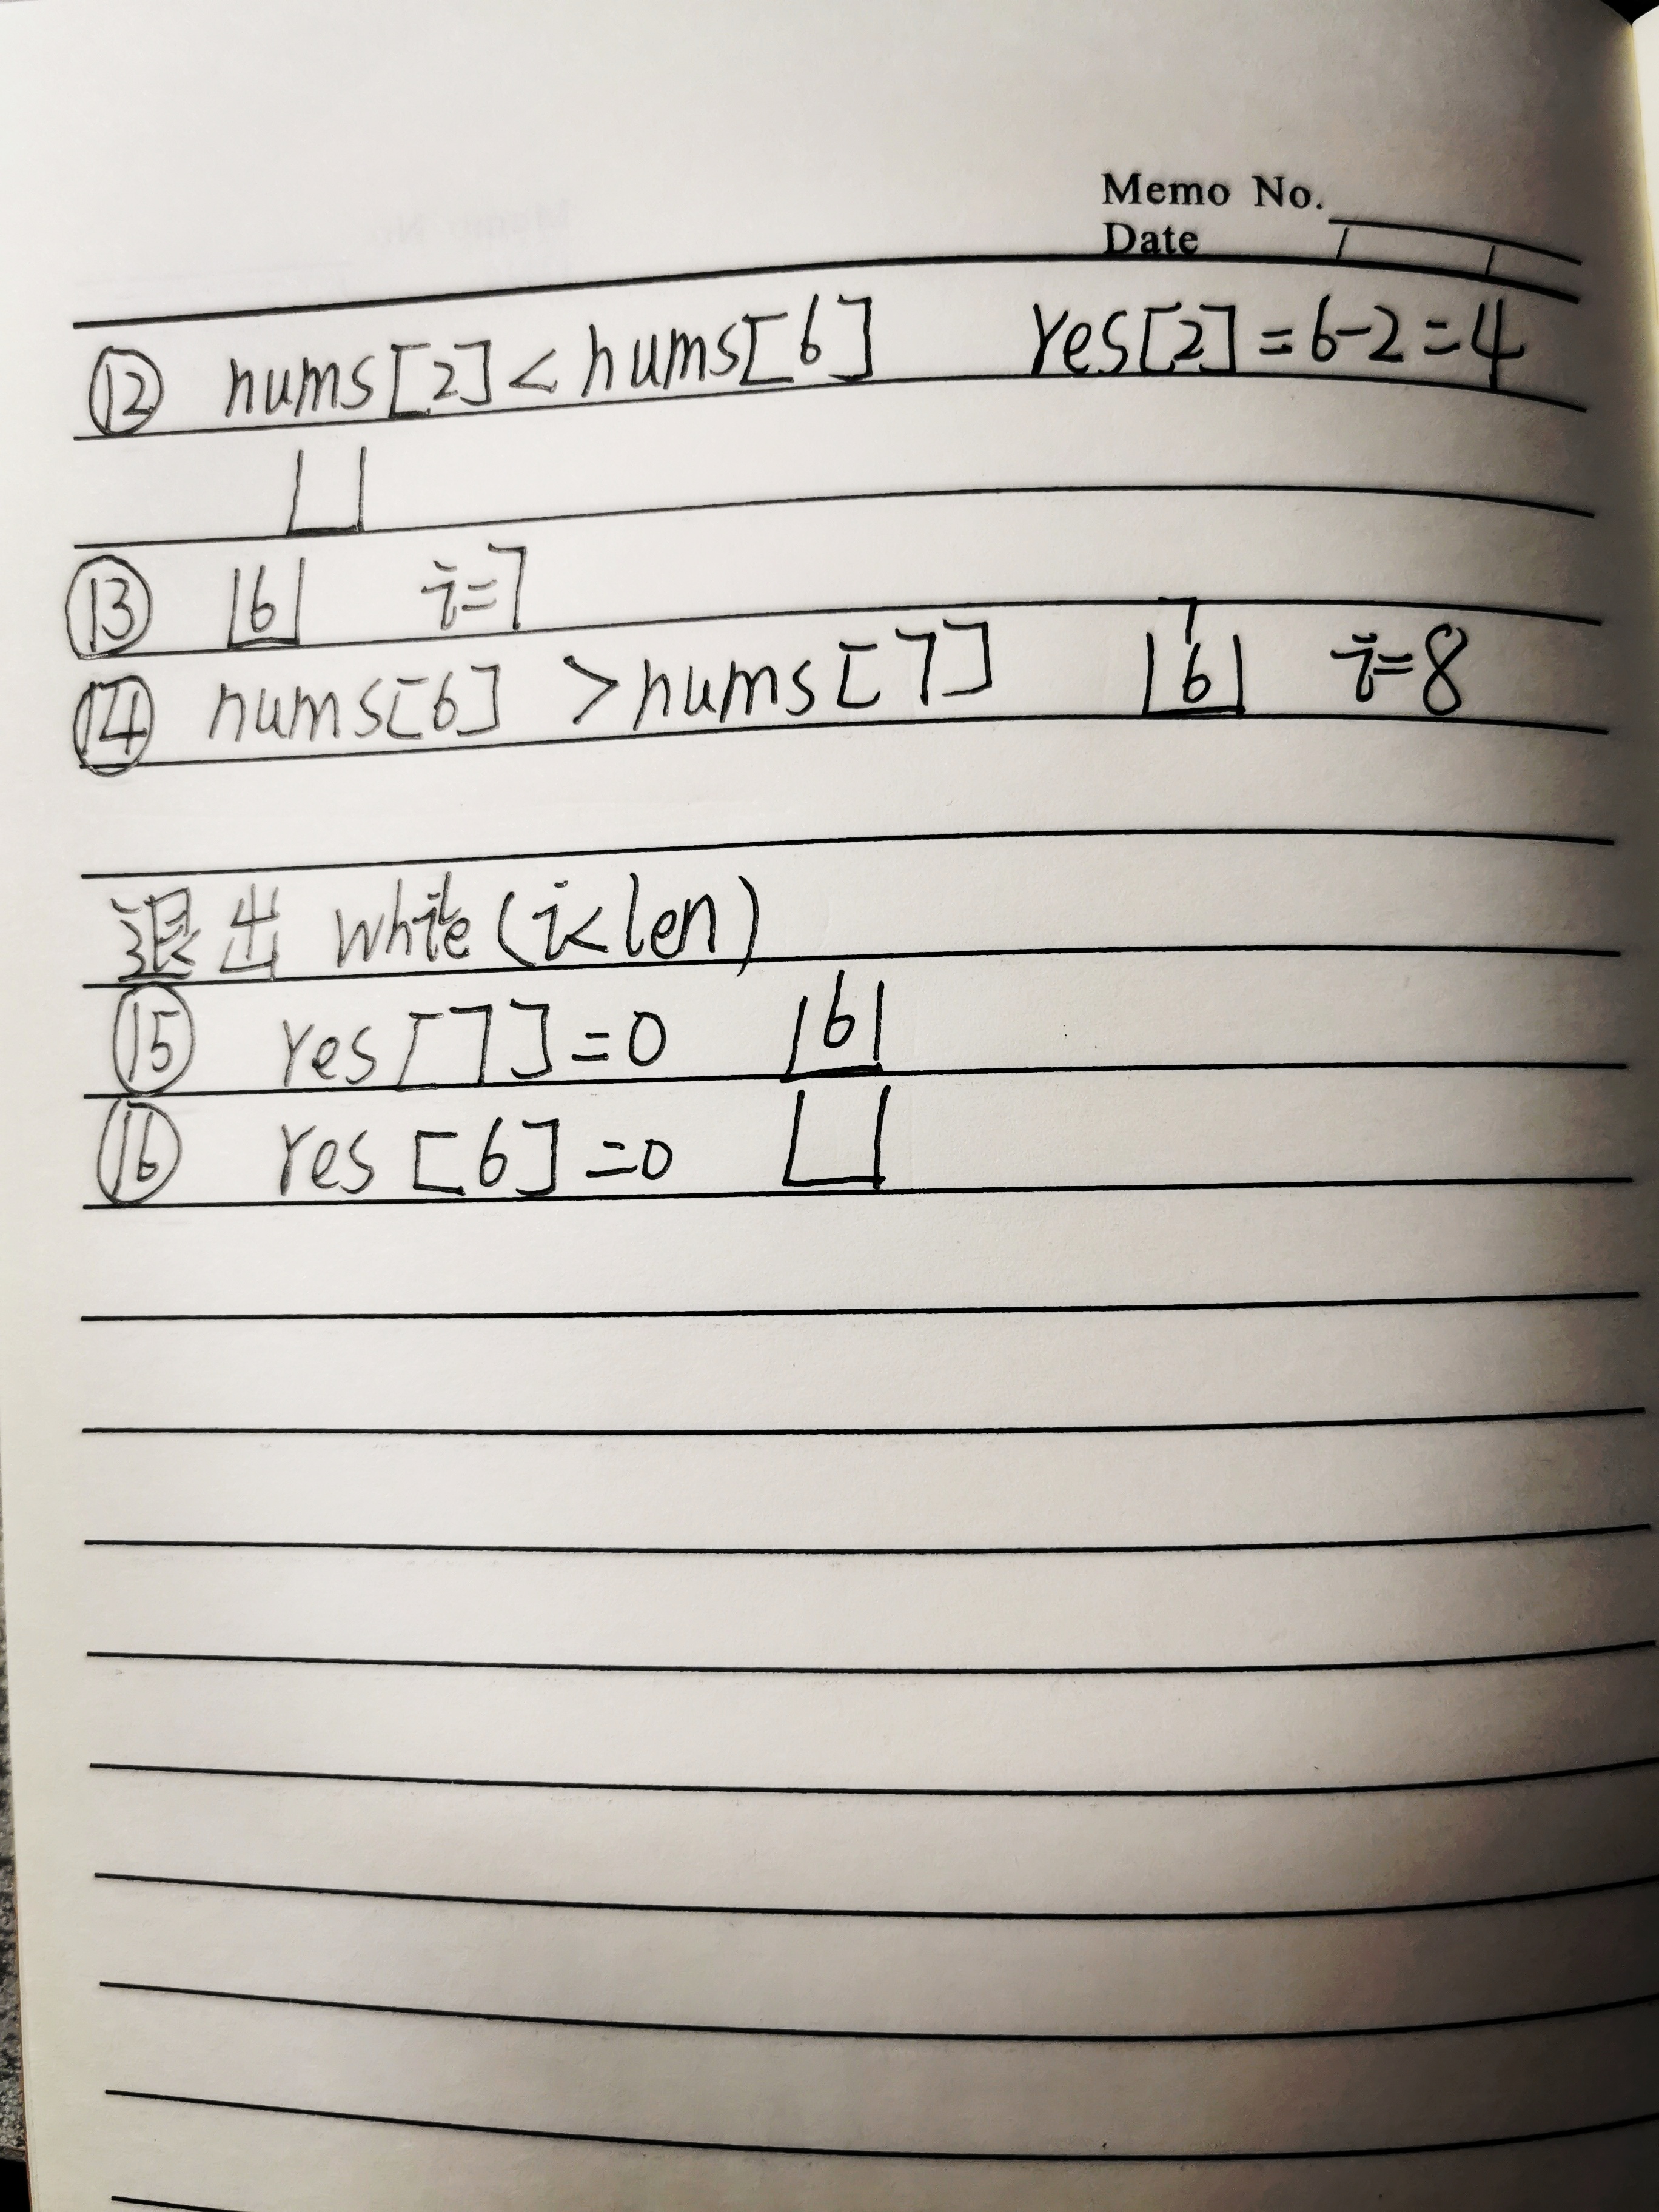 Memo No.
Date / /
⑫ nums[2]<nums[6] res[2]=6-2=4
⑬ 6 i=7
⑭ nums[6] >nums[7] 7 6 i=8
退出 while(i<len)
⑮ res[7]=0 6
⑯ res[6]=0